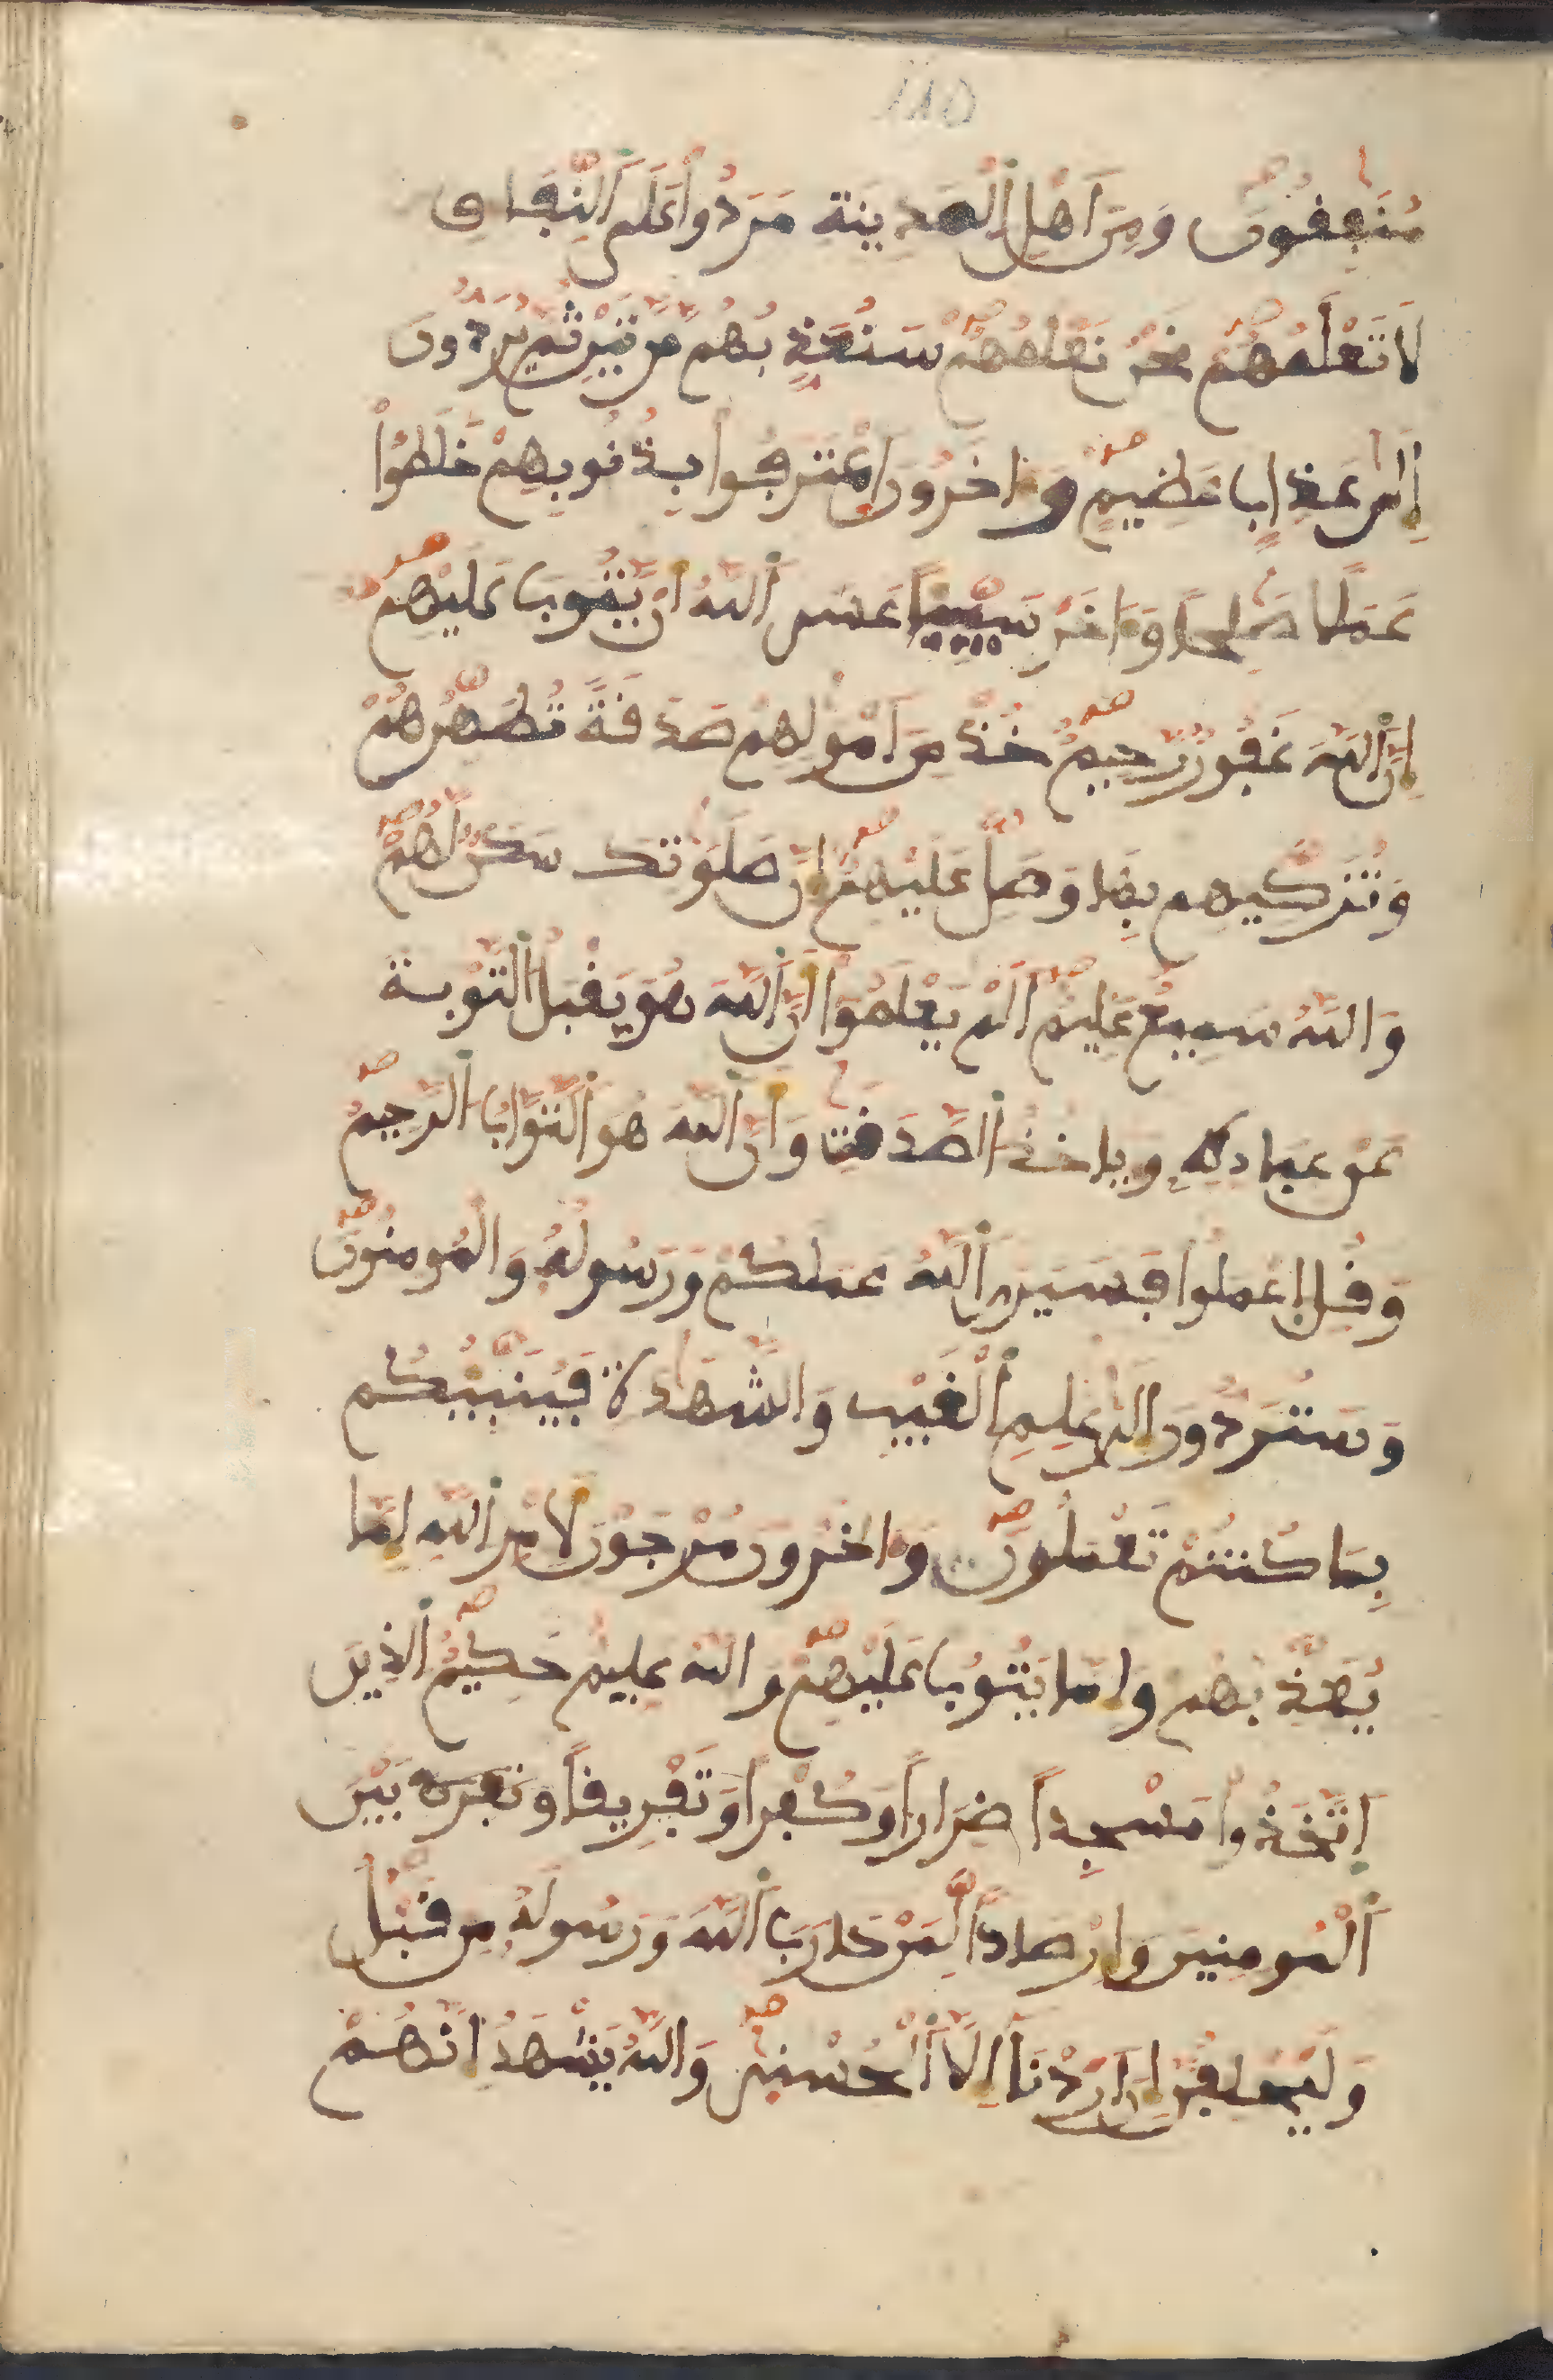 ١١٥
مُنَٰفِقُونَ وَمِنَ اَهْلِ اِ۬لْمَدِينَةِ مَرَدُواْ عَلَى اَ۬لنِّفَاقِ
لَا تَعْلَمُهُمْ نَحْنُ نَعْلَمُهُمْ سَنُعَذِّبُهُم مَّرَّتَيْنِ ثُمَّ يُرَدُّونَ
إِلَىٰ عَذَابٍ عَظِيمٍ وَءَاخَرُونَ اَ۪عْتَرَفُواْ بِذُنُوبِهِمْ خَلَطُواْ
عَمَلًا صَٰلِحًا وَءَاخَرَ سَيِّئًا عَسَى اَ۬للَّهُ أَنْ يَّتُوبَ عَلَيْهِمْ
إِنَّ اَ۬للَّهَ غَفُورٌ رَّحِيمٌ خُذْ مِنَ اَمْوَٰلِهِمْ صَدَقَةً تُطَهِّرُهُمْ
وَتُزَكِّيهِم بِهَا وَصَلِّ عَلَيْهِمْ إِنَّ صَلَوَٰتِكَ سَكَنٌ لَّهُمْ
وَاللَّهُ سَمِيعٌ عَلِيمٌ اَلَمْ يَعْلَمُواْ أَنَّ اَ۬للَّهَ هُوَ يَقْبَلُ التَّوْبَةَ
عَنْ عِبَادِهِ وَيَاخُذُ اُ۬لصَّدَقَٰتِ وَأَنَّ اَ۬للَّهَ هُوَ اَ۬لتَّوَّابُ اُ۬لرَّحِيمُ
وَقُلِ اِ۪عْمَلُواْ فَسَيَرَى اَ۬للَّهُ عَمَلَكُمْ وَرَسُولُهُ وَالْمُومِنُونَ
وَسَتُرَدُّونَ إِلَىٰ عَٰلِمِ اِ۬لْغَيْبِ وَالشَّهَٰدَةِ فَيُنَبِّئُكُم
بِمَا كُنتُمْ تَعْمَلُونَ وَءَاخَرُونَ مُرْجَوْنَ لِأَمْرِ اِ۬للَّهِ إِمَّا
يُعَذِّبُهُمْ وَإِمَّا يَتُوبُ عَلَيْهِمْ وَاللَّهُ عَلِيمٌ حَكِيمٌ اِ۬لذِينَ
اَ۪تَّخَذُواْ مَسْجِدًا ضِرَارًا وَكُفْرًا وَتَفْرِيقًا وتفرىٯ بَيْنَ
اَ۬لْمُومِنِينَ وَإِرْصَادًا لِّمَنْ حَارَبَ اَ۬للَّهَ وَرَسُولَهُ مِن قَبْلُ
وَلَيَحْلِفُنَّ إِنَ اَرَدْنَا إِلَّا اَ۬لْحُسْنَىٰ وَاللَّهُ يَشْهَدُ إِنَّهُمْ